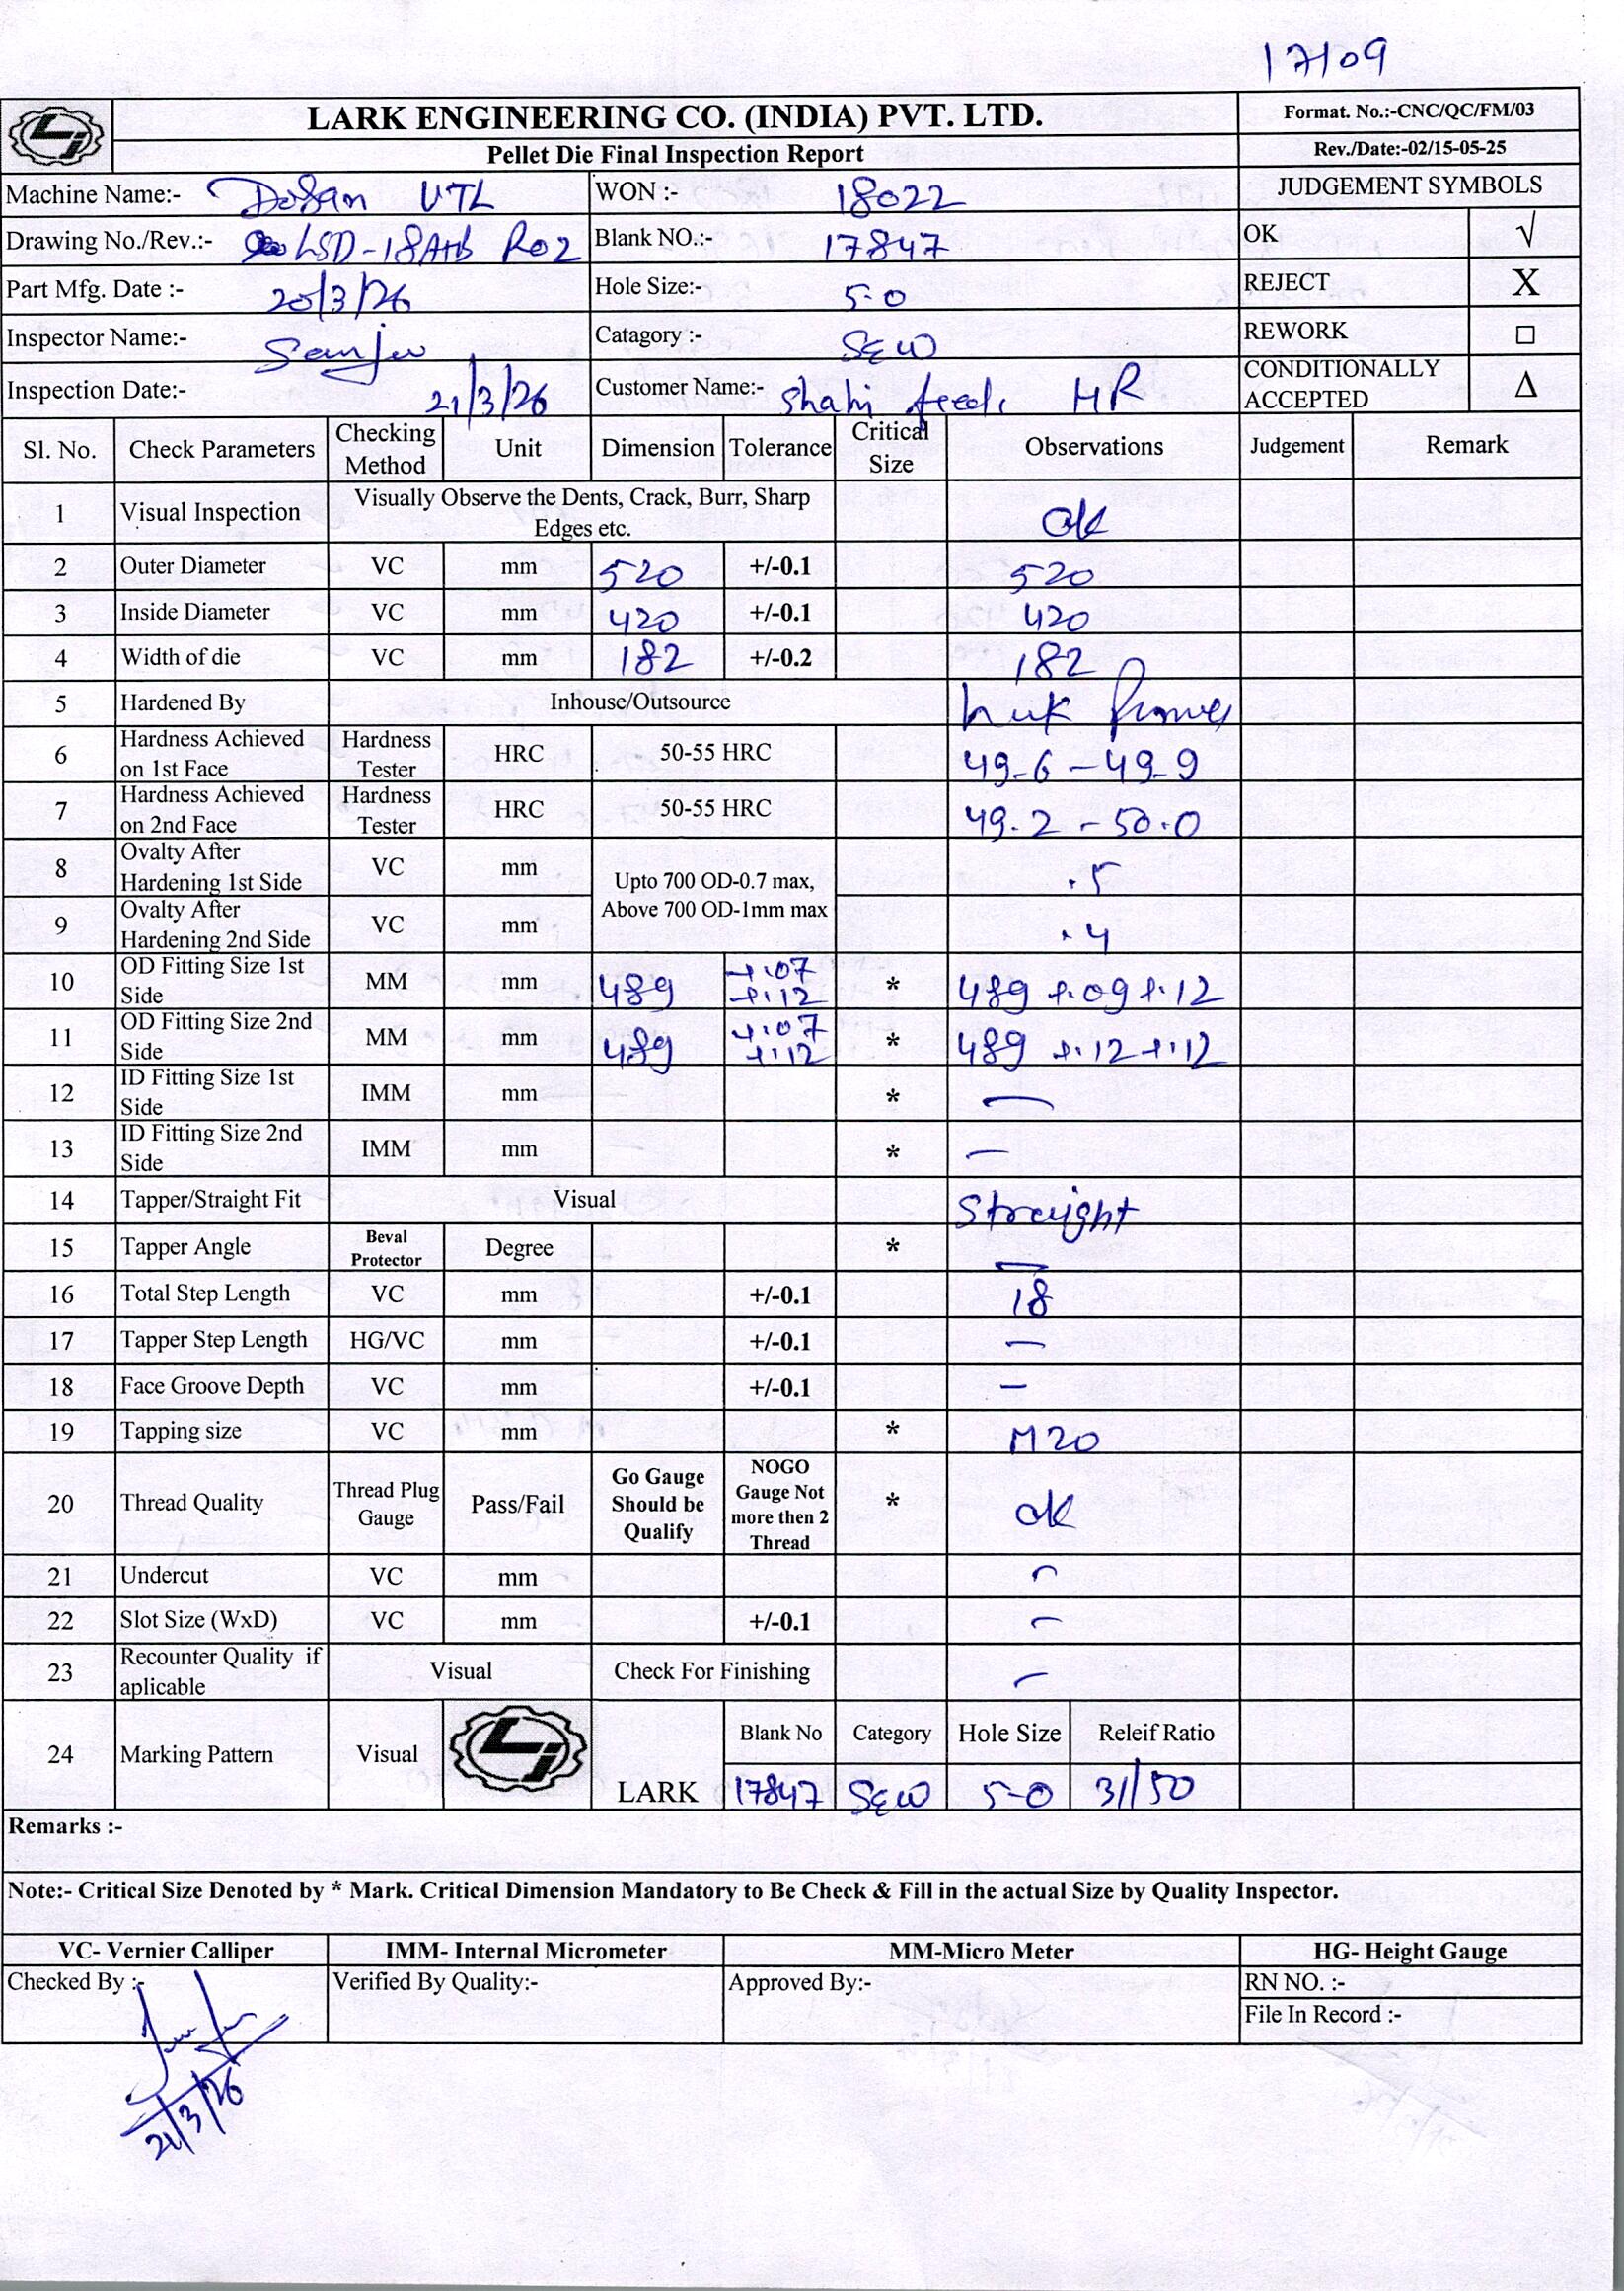 17109
LARK ENGINEERING CO. (INDIA) PVT. LTD.
Format. No.:-CNC/QC/FM/03
Pellet Die Final Inspection Report
Rev./Date:-02/15-05-25
Machine Name:- Dosan VTL WON :- 18022 JUDGEMENT SYMBOLS
Drawing No./Rev.:- LSD-18 R02 Blank NO.:- 17847 OK √
Part Mfg. Date :- 20/3/26 Hole Size:- 5-0 REJECT X
Inspector Name:- Sanju Catagory :- SEW REWORK □
Inspection Date:- 21/3/26 Customer Name:- Shahi feeds HR CONDITIONALLY ACCEPTED Δ
Sl. No. Check Parameters Checking Method Unit Dimension Tolerance Critical Size Observations Judgement Remark
1 Visual Inspection Visually Observe the Dents, Crack, Burr, Sharp Edges etc. Ok
2 Outer Diameter VC mm 520 +/-0.1 520
3 Inside Diameter VC mm 420 +/-0.1 420
4 Width of die VC mm 182 +/-0.2 182
5 Hardened By Inhouse/Outsource
6 Hardness Achieved on 1st Face Hardness Tester HRC 50-55 HRC 49-6 - 49-9
7 Hardness Achieved on 2nd Face Hardness Tester HRC 50-55 HRC 49.2 - 50.0
8 Ovalty After Hardening 1st Side VC mm Upto 700 OD-0.7 max, Above 700 OD-1mm max .5
9 Ovalty After Hardening 2nd Side VC mm .4
10 OD Fitting Size 1st Side MM mm 489 +.07 +.12 * 489 +.09 +.12
11 OD Fitting Size 2nd Side MM mm 489 +.07 +.12 * 489 +.12 +.12
12 ID Fitting Size 1st Side IMM mm * —
13 ID Fitting Size 2nd Side IMM mm * —
14 Tapper/Straight Fit Visual Straight
15 Tapper Angle Beval Protector Degree * —
16 Total Step Length VC mm +/-0.1 18
17 Tapper Step Length HG/VC mm +/-0.1 —
18 Face Groove Depth VC mm +/-0.1 —
19 Tapping size VC mm * M20
20 Thread Quality Thread Plug Gauge Pass/Fail Go Gauge Should be Qualify NOGO Gauge Not more then 2 Thread * ok
21 Undercut VC mm —
22 Slot Size (WxD) VC mm +/-0.1 —
23 Recounter Quality if aplicable Visual Check For Finishing —
24 Marking Pattern Visual LARK Blank No Category Hole Size Releif Ratio
17847 SEW 5-0 31/50
Remarks :-
Note:- Critical Size Denoted by * Mark. Critical Dimension Mandatory to Be Check & Fill in the actual Size by Quality Inspector.
VC- Vernier Calliper IMM- Internal Micrometer MM-Micro Meter HG- Height Gauge
Checked By :- Verified By Quality:- Approved By:- RN NO. :-
File In Record :-
21/3/26